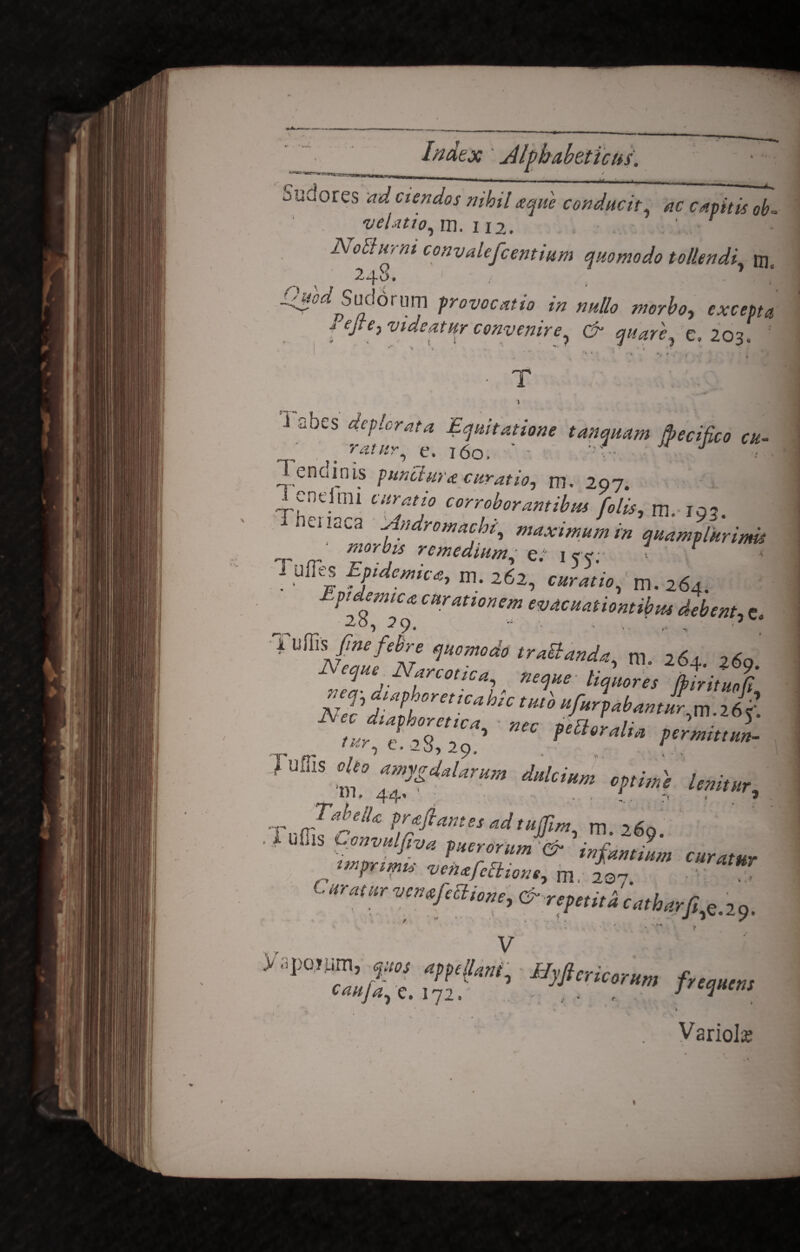 Index Alphabeticus.
Sudores ad ciendos nihil æque conducit, ac capitis ob-
velatio, m. 112.
Nocturni convalescentium quomodo tollendi, m.
248.
Quod Sudorum provocatio in nullo morbo, excepta
Peste, videatur convenire, & quare, e. 203.
T
Tabes deplorata Equitatione tanquam specifico cu-
ratur, e. 160.
Tendinis puncturæ curatio, m. 297.
Tenesmi curatio corroborantibus solis, m. 193.
Theriaca Andromachi, maximum in quamplurimis
morbis remedium, e. 155.
Tusses Epidemicæ, m. 262, curatio, m. 264.
Epidemicæ curationem evacuationtibus debent, e.
28, 29.
Tussis sine febre quomodo tractanda, m. 264. 269.
Neque Narcotica, neque liquores spirituosi,
neq; diaphoretica hic tuto usurpabantur, m. 265.
Nec diaphoretica, nec pectoralia permittun-
tur, e. 28, 29.
Tussis oleo amygdalarum dulcium optime lenitur,
m. 44.
Tabellæ præstantes ad tussim, m. 269.
Tussis Convulsiva puerorum & infantium curatur
imprimis venæsectione, m. 207.
Curatur venæsectione, & repetitâ catharsi, e. 29.
V
Vaporum, quos appellant, Hystericorum frequens
causa, e. 172.
Variolæ